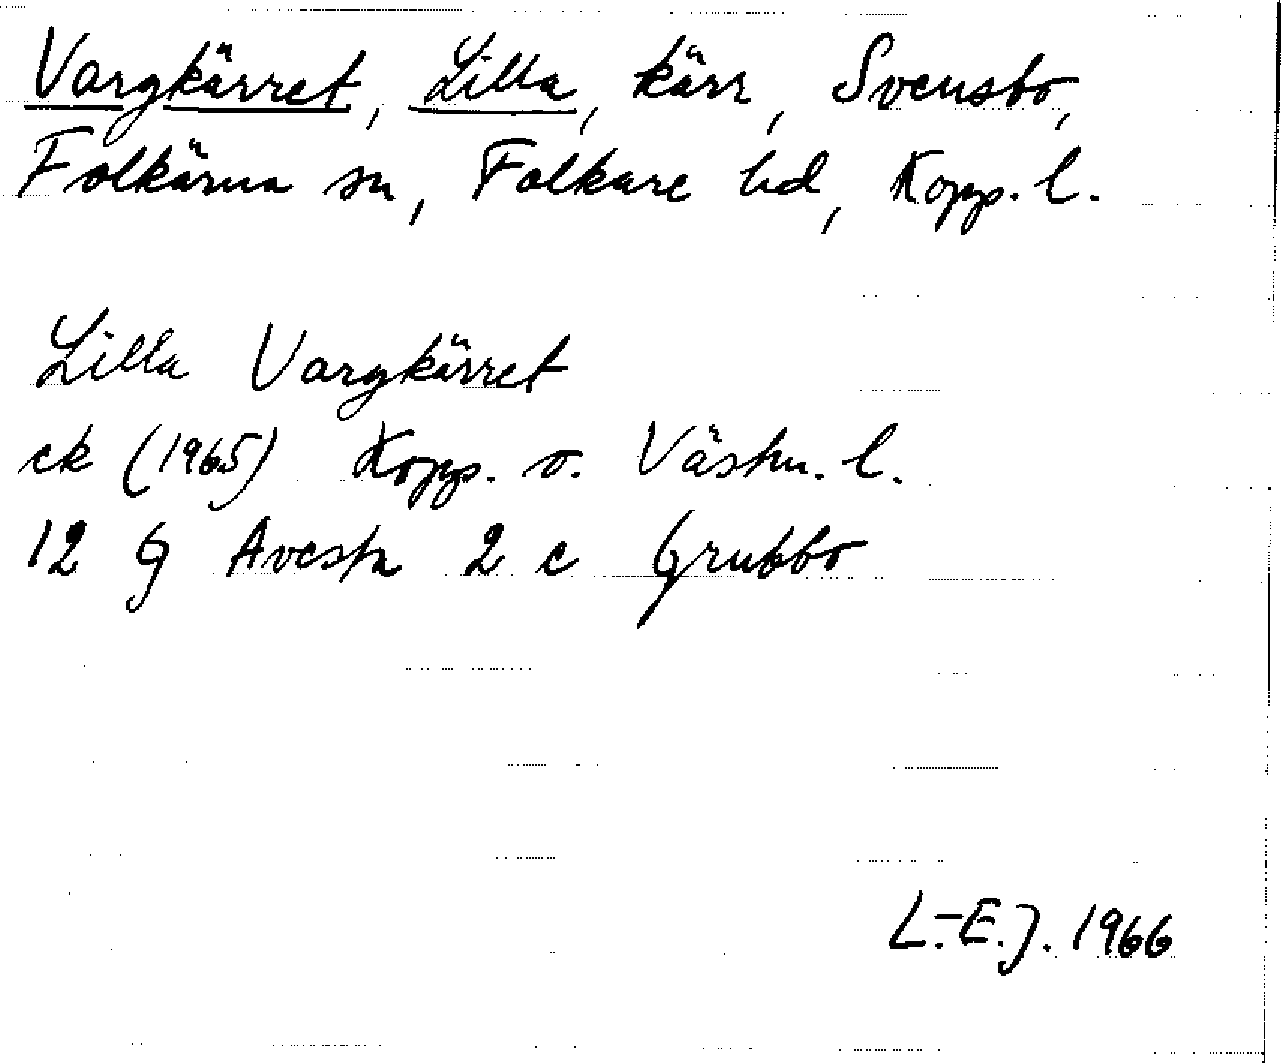 Vargkärret, Lilla, kärr, Svensbo,
Folkärna sn, Folkare hd, Kopp. l.
Lilla Vargkärret
ek (1965) Kopp. o. Västm. l.
12 G Avesta 2 c Grubbo
L.-E.J. 1966